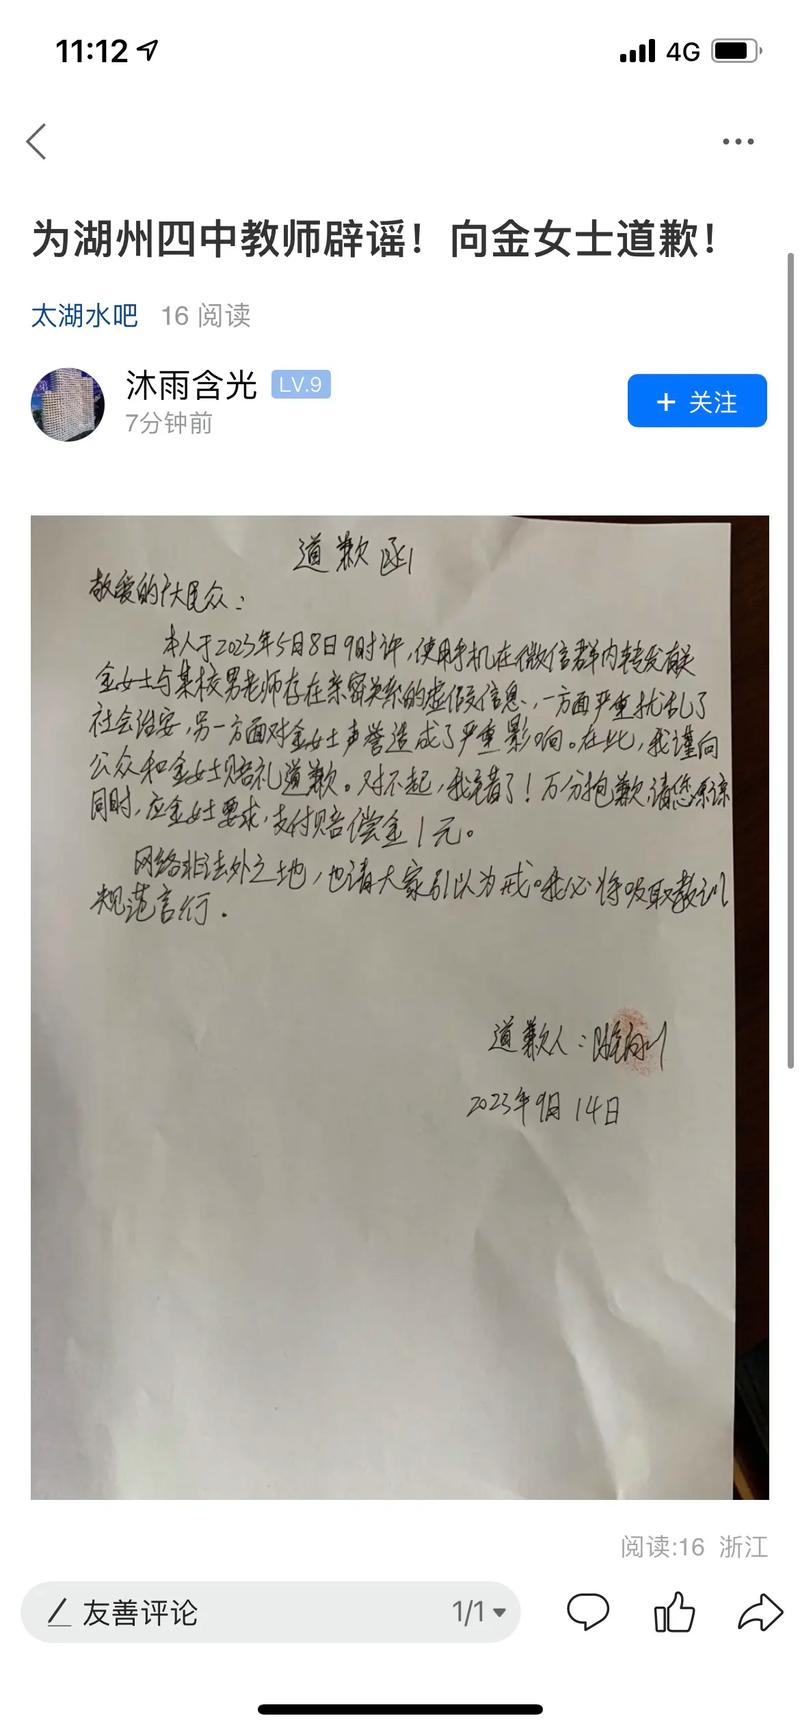 11:12
4G
为湖州四中教师辟谣！向金女士道歉！
太湖水吧 16 阅读
沐雨含光 LV.9
7分钟前
+ 关注
道歉函
敬爱的广大民众：
本人于2023年5月8日9时许，使用手机在微信群内转发有关
金女士与某校男老师存在亲密关系的虚假信息，一方面严重扰乱了
社会治安，另一方面对金女士声誉造成了严重影响。在此，我谨向
公众和金女士赔礼道歉。对不起，我错了！万分抱歉，请您原谅
同时，应金女士要求，支付赔偿金1元。
网络非法外之地，也请大家引以为戒。我必将吸取教训
规范言行.
道歉人：
2023年9月14日
阅读:16 浙江
友善评论 1/1